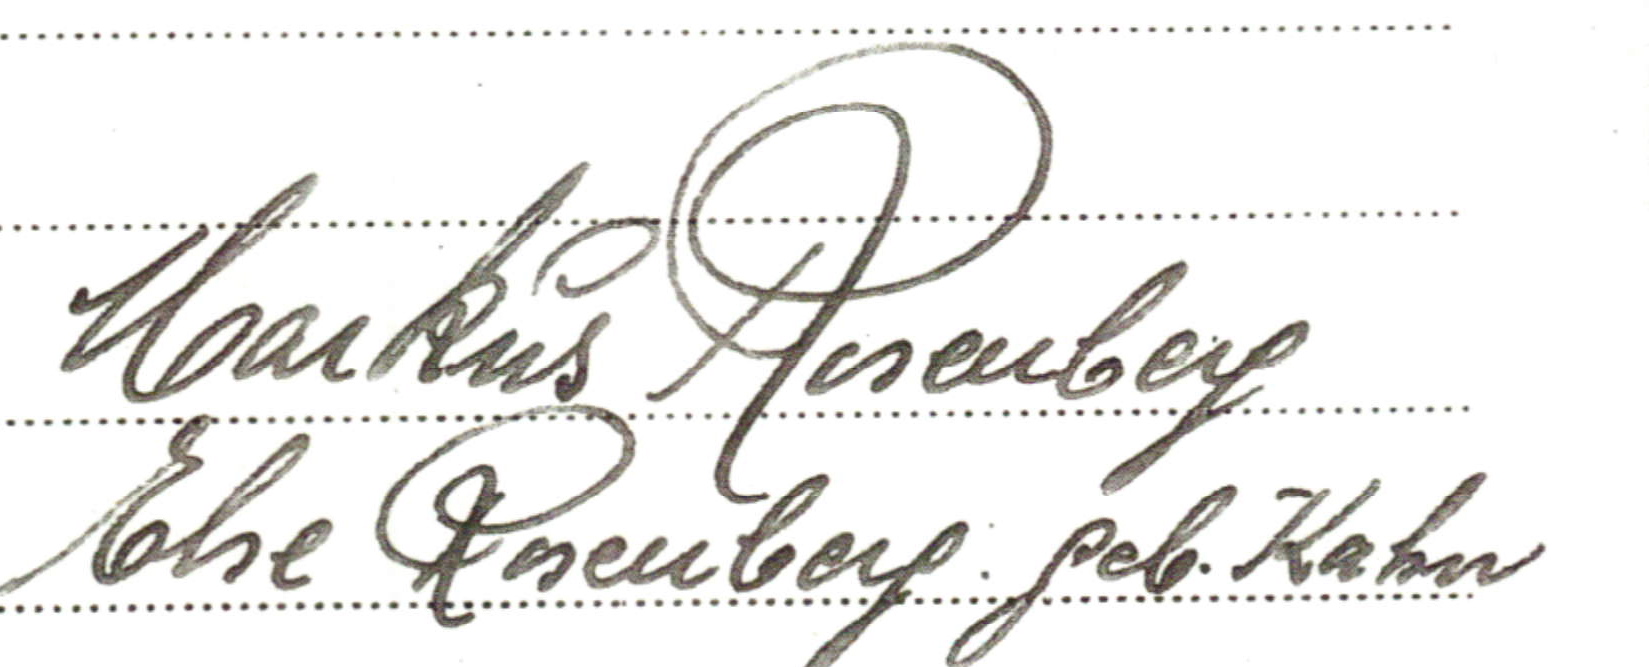 Markus Rosenberg
Else Rosenberg. geb. Kahn